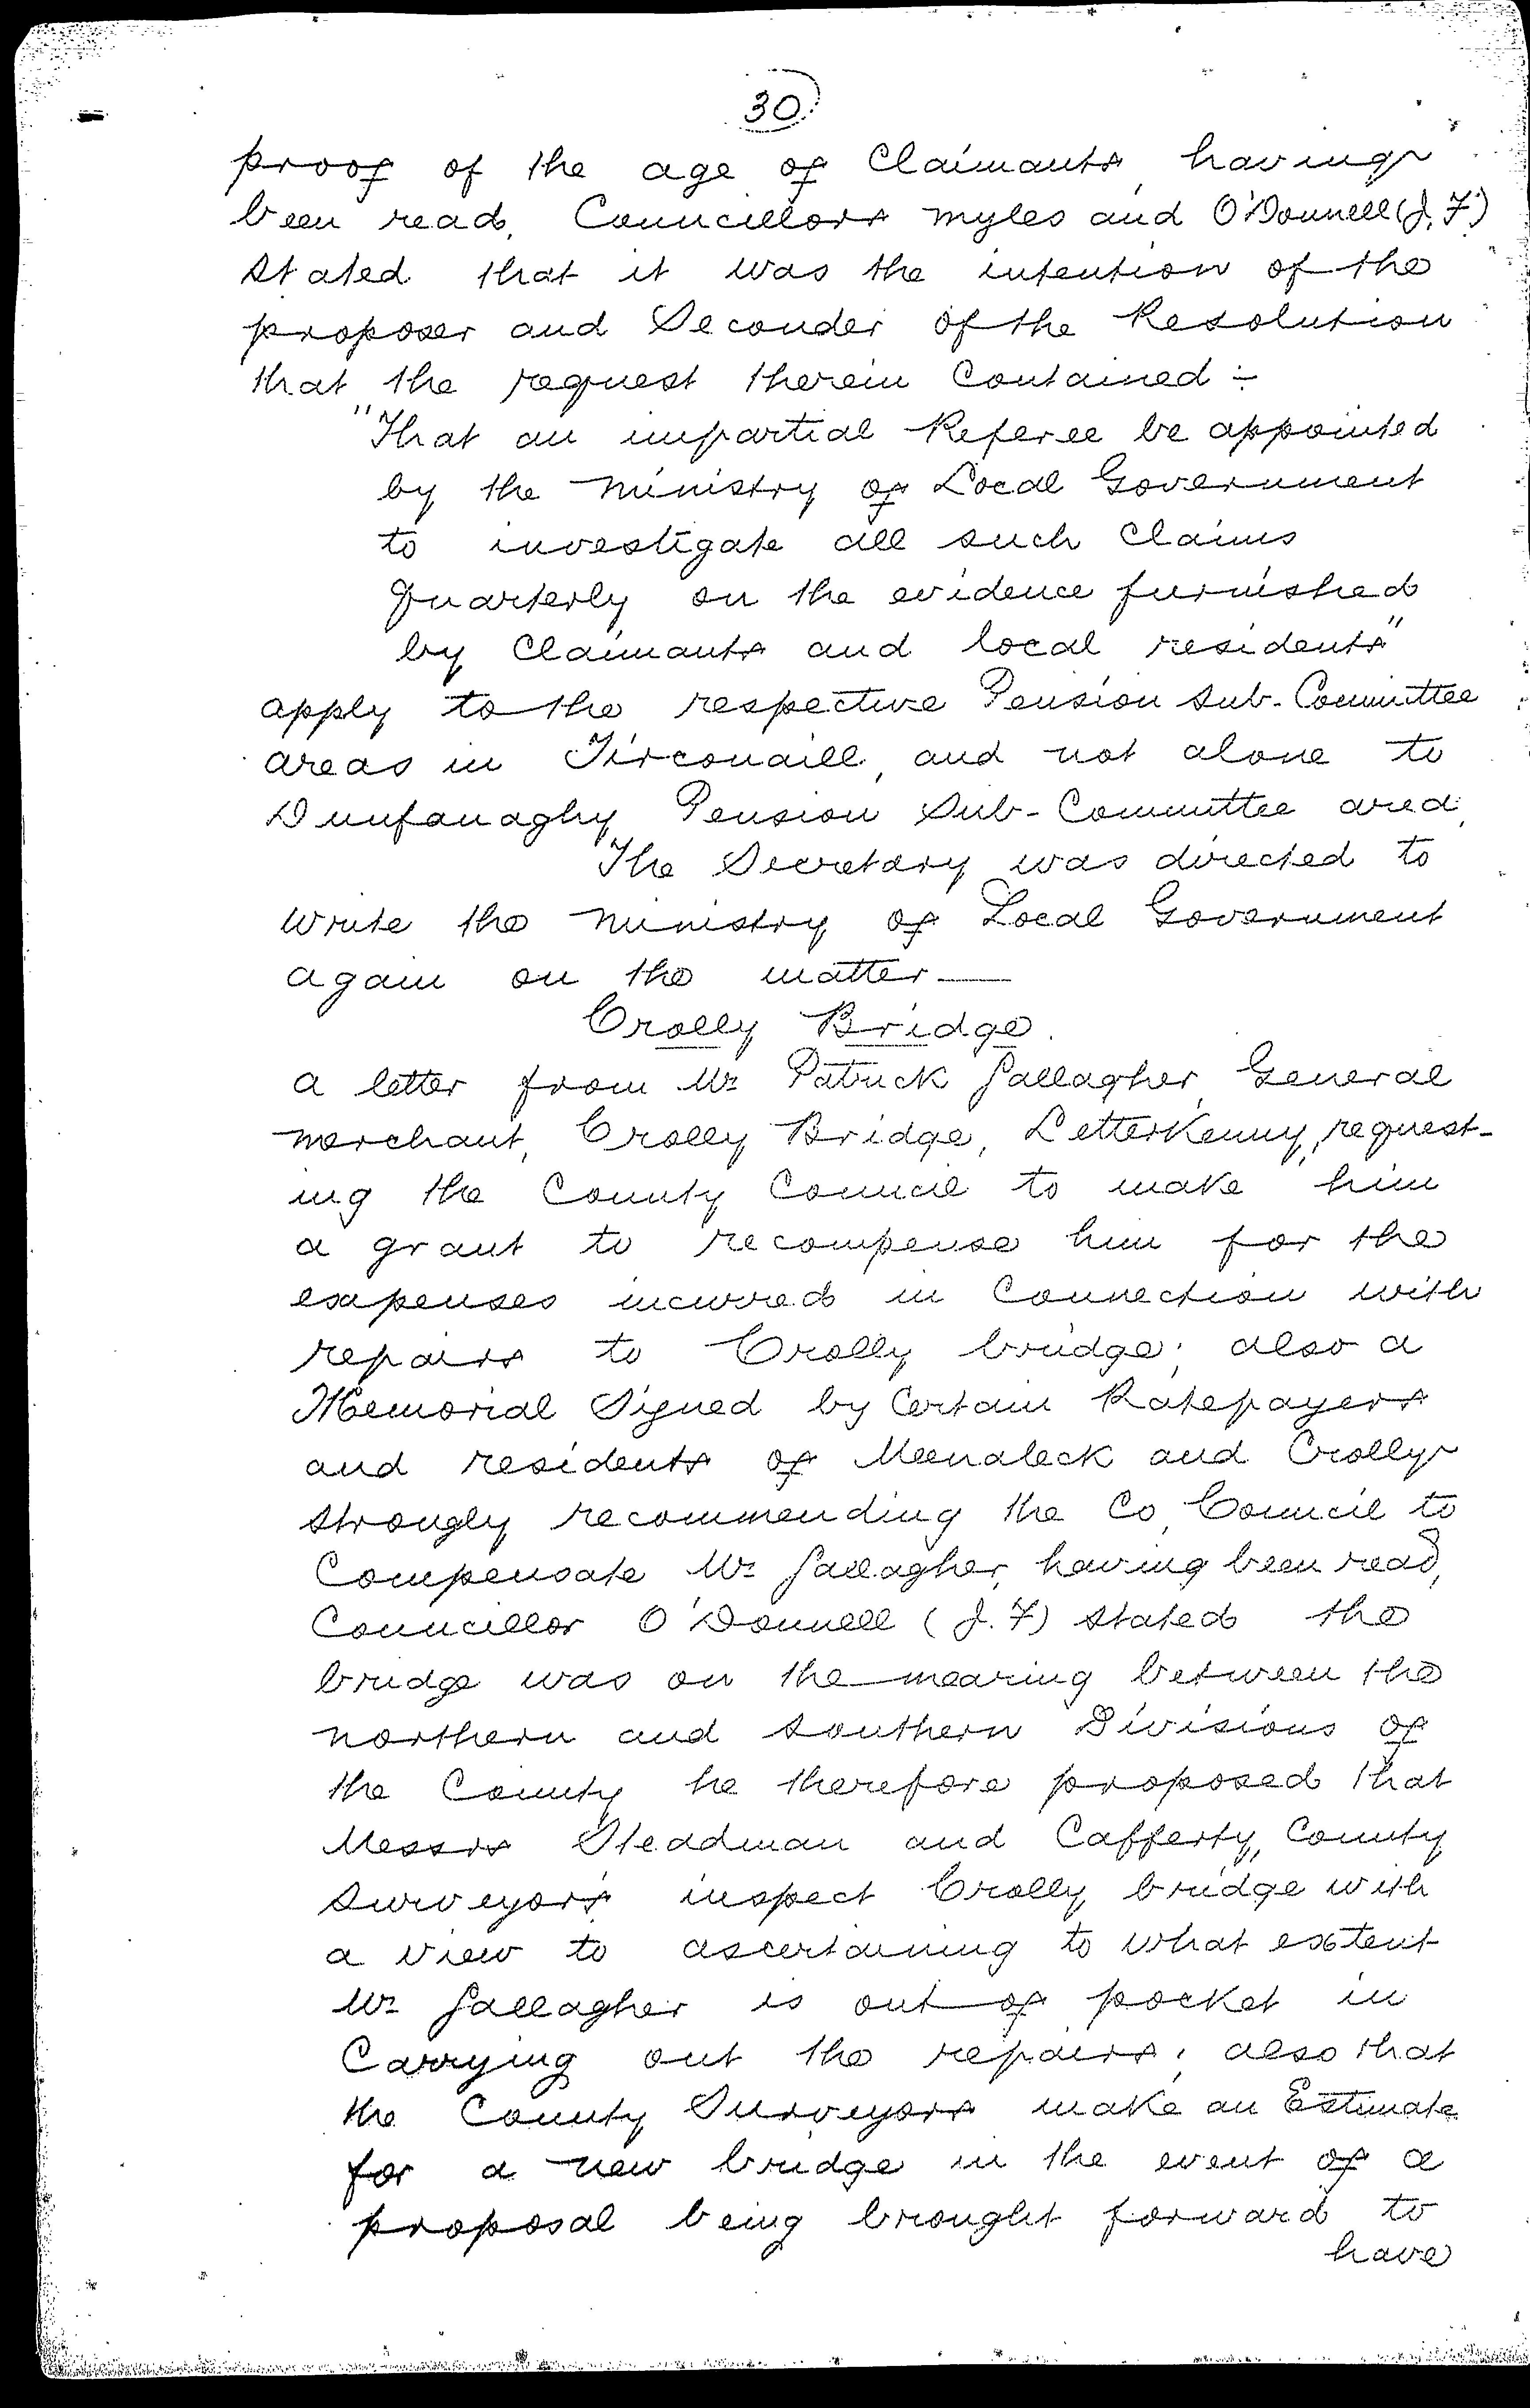 30
proof of the age of Claimants, having
been read, Councillors Myles and O'Donnell (J. F.)
stated that it was the intention of the
proposer and Seconder of the Resolution
that the request therein Contained :-
"That an impartial Referee be appointed
by the Ministry of Local Government
to investigate all such Claims
Quarterly on the evidence furnished
by Claimants and local residents"
apply to the respective Pension Sub-Committee
areas in Tirconaill, and not alone to
Dunfanaghy Pension Sub-Committee area.
The Secretary was directed to
write the Ministry of Local Government
again on the matter —
Crolly Bridge.
A letter from Mr Patrick Gallagher, General
Merchant, Crolly Bridge, Letterkenny, request-
ing the County Council to make him
a grant to recompense him for the
expenses incurred in Connection with
repairs to Crolly bridge; also a
Memorial Signed by Certain Ratepayers
and residents of Meenaleck and Crolly
strongly recommending the Co. Council to
Compensate Mr Gallagher, having been read,
Councillor O'Donnell (J. F) stated the
bridge was on the mearing between the
northern and southern Divisions of
the County he therefore proposed that
Messrs Steadman and Cafferty, County
Surveyors inspect Crolly bridge with
a view to ascertaining to what extent
Mr Gallagher is out of pocket in
Carrying out the repairs; also that
the County Surveyors make an Estimate
for a new bridge in the event of a
proposal being brought forward to
have